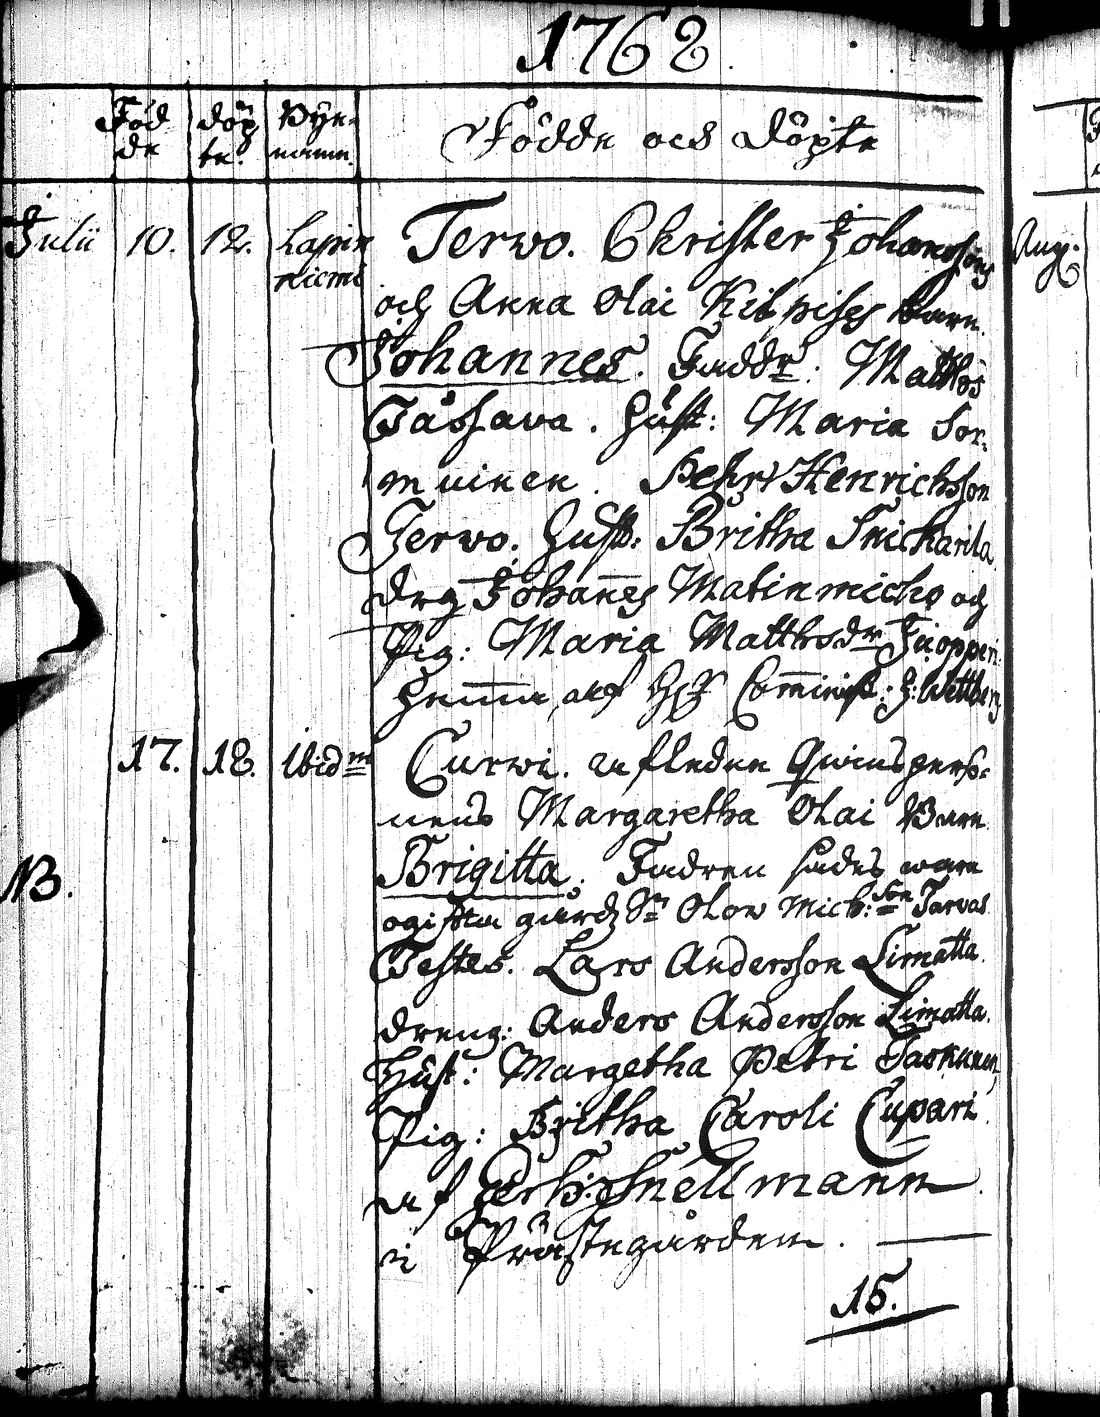 1762.
Föd
de
döp
te.
Byn-
namn.
Födde och döpte
Julii 10. 12. Lapin
niemi
Terwo. Christer Johanssons
och Anna Olai Kilpises barn
Johannes. Faddr: Matths
Tåssava. Hust: Maria Sor-
muinen. Pehr Henrichsson
Terwo. Hust: Britha Snickarila
drg Johañes Matinmicho och
Pig: Maria Matthsdr Juopperi
hemma, af Comminist: J: Wettberg
17. 18. Ibidm
Curwi. afledne Qwinsperso-
nens Margaretha Olai Barn
Brigitta. Fadren sades wara
NB.
ogifta gårdz Sn Olow Mich:son Tarvas
Testes. Lars Andersson Limatta.
dreng: Anders Andersson Limatta.
Hust: Margetha Petri Taskinen,
Pig: Britha Caroli Cupari.
af Snellmann.
i Prästegården.
15.
Aug.